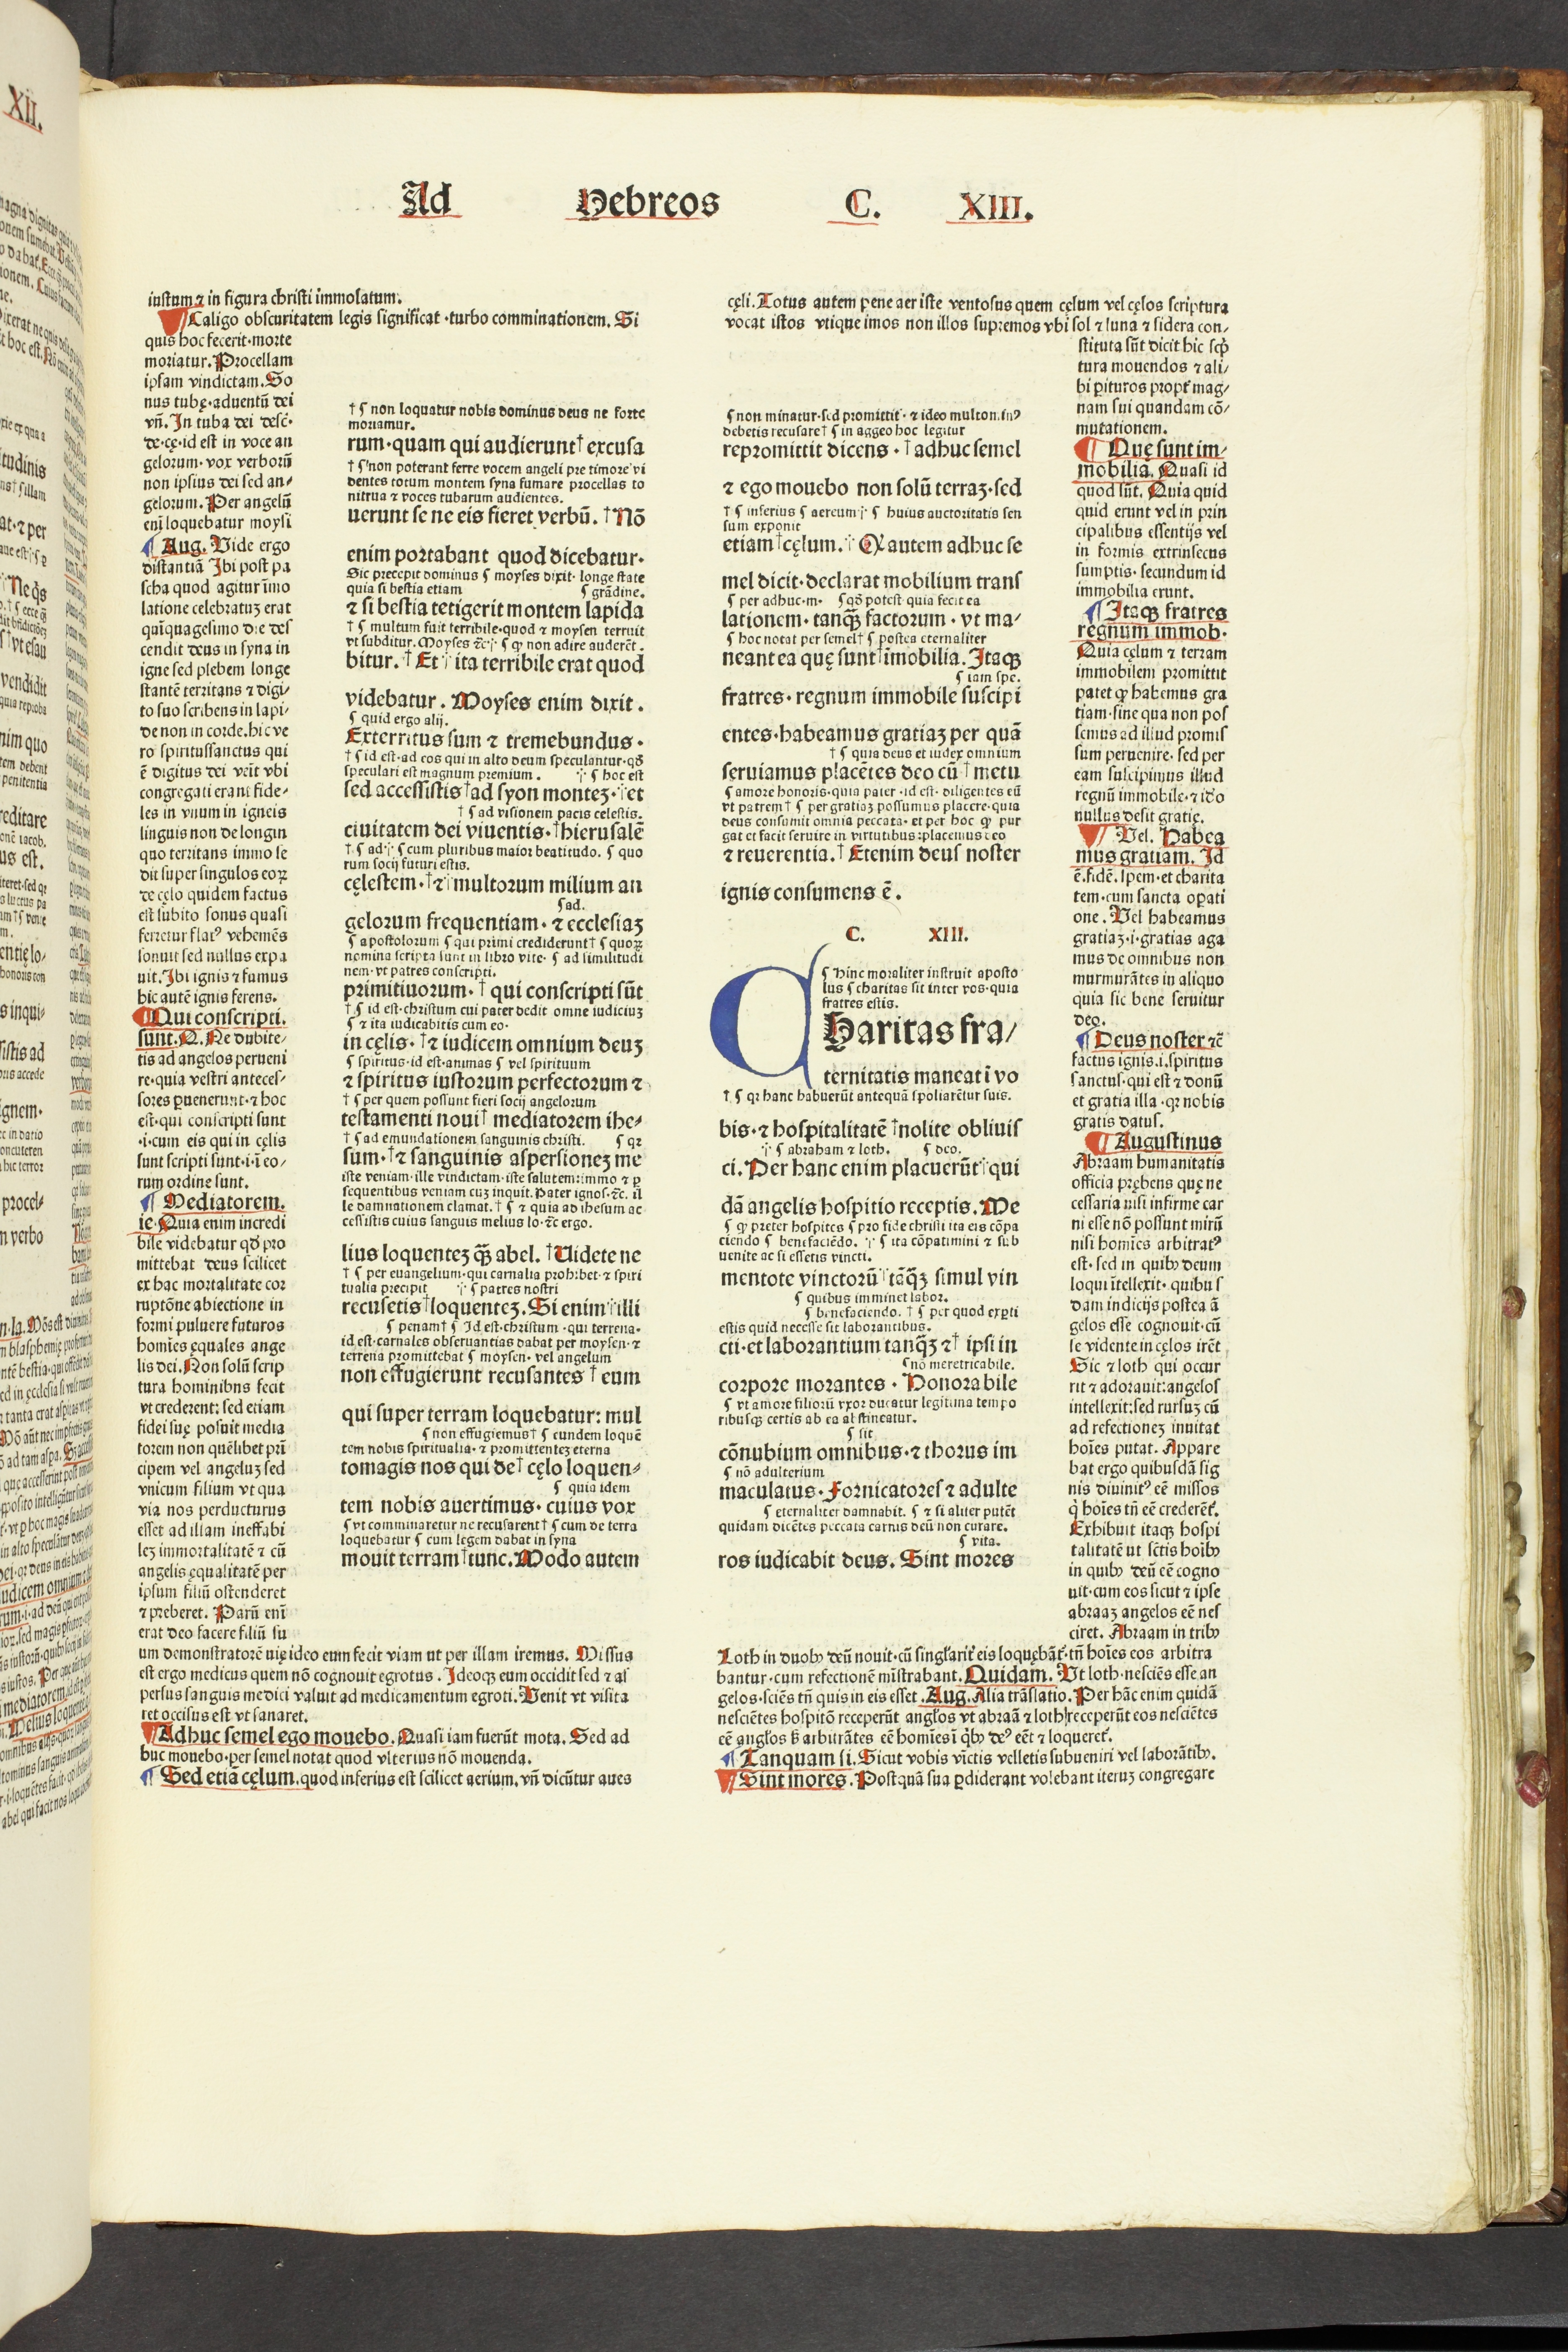 Ad Hebreos C. XIII.
iustum ⁊ in figura christi immolatum.
Caligo obscuritatem legis significat ·turbo comminationem. Si
quis hoc fecerit·morte
moriatur. Procellam
ipsam vindictam. So
nus tubę·aduentū dei
vn̄. In tuba dei desc̄·
de·cę·id est in voce an
gelorum· vox verborū
non ipsius dei sed an⸗
gelorum. Per angelū
eni loquebatur moysi
Aug. Vide ergo
distantiā Ibi post pa
scha quod agitur īmo
latione celebratuʒ erat
quīquagesimo die des
cendit deus in syna in
igne sed plebem longe
stantē territans ⁊ digi⸗
to suo scribens in lapi⸗
de non in corde.hic ve
ro spiritussanctus qui
ē digitus dei veīt vbi
congregati erant fide⸗
les in vnum in igneis
linguis non de longin
quo territans immo se
dit super singulos eoꝝ
de cęlo quidem factus
est subito sonus quasi
ferretur flatꝰ vehemēs
sonuit sed nullus expa
uit. Ibi ignis ⁊ fumus
hic autē ignis ferens.
Qui conscripti.
sunt.Q. Ne dubite⸗
tis ad angelos perueni
re·quia vestri anteces⸗
sores ꝑuenerunt·⁊ hoc
est·qui conscripti sunt
·i·cum eis qui in cęlis
sunt scripti sunt·i·ī eo⸗
rum ordine sunt.
Mediatorem.
ie·Quia enim incredi
bile videbatur qđ pro
mittebat deus scilicet
ex hac mortalitate cor
ruptōne abiectione in
formi puluere futuros
homīes ęquales ange
lis dei. Non solū scrip
tura hominibns fecit
vt crederent: sed etiam
fidei suę posuit media
torem non quēlibet prī
cipem vel angeluʒ sed
vnicum filium vt qua
via nos perducturus
esset ad illam ineffabi
leʒ immortalitatē ⁊ cū
angelis ęqualitatē per
ipsum filiū ostenderet
⁊ preberet. Parū eni
erat deo facere filiū su
um demonstratorē uię ideo eum fecit viam ut per illam iremus. Missus
est ergo medicus quem nō cognouit egrotus. Ideoqꝫ eum occidit sed ⁊ as
persus sanguis medici valuit ad medicamentum egroti. Venit vt visita
ret occisus est vt sanaret.
Adhuc semel ego mouebo. Quasi iam fuerūt mota. Sed ad
huc mouebo·per semel notat quod vlterius nō mouenda.
Sed etiā cęlum. quod inferius est scilicet aerium. vn̄ dicūtur aues
† ⸿ non loquatur nobis dominus deus ne forte
moriamur.
rum·quam qui audierunt† excusa
† ⸿ non poterant ferre vocem angeli pre timore vi
dentes totum montem syna fumare procellas to
nitrua ⁊ voces tubarum audientes.
uerunt se ne eis fieret verbū. †Nō
enim portabant quod dicebatur·
Sic precepit dominus ⸿ moyses dixit· longe state
quia si bestia etiam ⸿ grādine.
⁊ si bestia tetigerit montem lapida
† ⸿ multum fuit terribile·quod ⁊ moysen terruit
vt subditur. Moyses ⁊c჻ ⸿ ꝙ non adire auderēt.
bitur. † Et჻ ita terribile erat quod
videbatur. Moyses enim dixit.
⸿ quid ergo alij.
Exterritus sum ⁊ tremebundus·
† ⸿ id est·ad eos qui in alto deum speculantur·qđ
speculari est magnum premium. ჻ ⸿ hoc est
sed accessistis†ad syon monteʒ·჻et
† ⸿ ad visionem pacis celestis.
ciuitatem dei viuentis·†hierusalē
† ⸿ ad჻ ⸿ cum pluribus maior beatitudo. ⸿ quo
rum socij futuri estis.
cęlestem·†⁊჻multorum milium an
⸿ad.
gelorum frequentiam· ⁊ ecclesiaʒ
⸿ apostolorum ⸿ qui primi crediderunt† ⸿ quoꝝ
nomina scripta sunt in libro vite· ⸿ ad similitudi
nem·vt patres conscripti.
primitiuorum·† qui conscripti sūt
† ⸿ id est·christum cui pater dedit omne iudiciuʒ
⸿ ⁊ ita iudicabitis cum eo·
in cęlis· †⁊ iudicem omnium deuʒ
⸿ spiritus·id est·animas ⸿ vel spirituum
⁊ spiritus iustorum perfectorum ⁊
† ⸿ per quem possunt fieri socij angelorum
testamenti noui† mediatorem ihe⸗
† ⸿ ad emundationem sanguinis christi. ⸿ qꝛ
sum·†⁊ sanguinis aspersioneʒ me
iste veniam·ille vindictam·iste salutem:immo ⁊ ꝑ
sequentibus veniam cuʒ inquit. Pater ignos·⁊c. il
le damnationem clamat. † ⸿ ⁊ quia ad ihesum ac
cessistis cuius sanguis melius lo·⁊c ergo.
lius loquenteʒ qꝫ̄ abel. †Uidete ne
† ⸿ per euangelium·qui carnalia prohibet·⁊ spiri
tualia precipit ჻ ⸿ patres nostri
recusetis†loquenteʒ. Si enim჻illi
⸿ penam† ⸿ Id est·christum ·qui terrena·
id est·carnales obseruantias dabat per moysen·⁊
terrena promittebat ⸿ moysen· vel angelum
non effugierunt recusantes † eum
qui super terram loquebatur: mul
⸿ non effugiemus† ⸿ eundem loquē
tem nobis spiritualia·⁊ promittenteʒ eterna
tomagis nos qui de† cęlo loquen⸗
⸿ quia idem
tem nobis auertimus· cuius vox
⸿ vt comminaretur ne recusarent† ⸿ cum de terra
loquebatur ⸿ cum legem dabat in syna
mouit terram†tunc. Modo autem
cęli. Totus autem pene aer iste ventosus quem cęlum vel cęlos scriptura
vocat istos vtique imos non illos supremos vbi sol ⁊ luna ⁊ sidera con⸗
⸿ non minatur·sed promittit· ⁊ ideo multo
debetis recusare† ⸿ in aggeo hoc legitur
repromittit dicens·†adhuc semel
⁊ ego mouebo non solū terraʒ·sed
† ⸿ inferius ⸿ aereum჻ ⸿ huius auctoritatis sen
sum exponit
etiam†cęlum.჻ Ꝙ autem adhuc se
mel dicit·declarat mobilium trans
⸿ per adhuc·m· ⸿qđ potest quia fecit ea
lationem· tanqꝫ̄ factorum· vt ma⸗
⸿ hoc notat per semel† ⸿ postea eternaliter
neant ea quę sunt†īmobilia. Itaqꝫ
⸿ iam spe.
fratres· regnum immobile suscipi
entes·habeamus gratiaʒ per quā
† ⸿ quia deus et iudex omnium
seruiamus placētes deo cū † metu
⸿ amore honoris·quia pater·id est· diligentes eū
vt patrem† ⸿ per gratiaʒ possumus placere·quia
deus consumit omnia peccata· et per hoc ꝙ pur
gat et facit seruire in virtutibus:placemus deo
⁊ reuerentia.† Etenim deus noster
ignis consumens ē.
C. XIII.
⸿ Hinc moraliter instruit aposto
lus ⸿ charitas sit inter vos·quia
fratres estis.
CHaritas fra⸗
ternitatis maneat ī vo
† ⸿ qꝛ hanc habuerūt antequā spoliarētur suis.
bis·⁊ hospitalitatē†nolite obliuis
჻ ⸿ abraham ⁊ loth. ⸿ deo.
ci. Per hanc enim placuerūt჻qui
dā angelis hospitio receptis. Me
⸿ ꝙ preter hospites ⸿ pro fide christi ita eis cōpa
ciendo ⸿ benefaciēdo. ჻ ⸿ ita cōpatimini ⁊ sub
uenite ac si essetis vincti.
mentote vinctorū†tāqꝫ̄ simul vin
⸿ quibus imminet labor.
⸿ benefaciendo. † ⸿ per quod exꝑti
estis quid necesse sit laborantibus.
cti·et laborantium tanqꝫ̄ ⁊† ipsi in
⸿nō meretricabile.
corpore morantes· Honorabile
⸿ vt amore filiorū vxor ducatur legitima tempo
ribusqꝫ certis ab ea abstineatur.
⸿ sit
cōnubium omnibus·⁊ thorus im
⸿ nō adulterium
maculatus· Fornicatores ⁊ adulte
⸿ eternaliter damnabit. ⸿ ⁊ si aliter putēt
quidam dicētes peccata carnis deū non curare.
⸿ vita.
ros iudicabit deus. Sint mores
stituta sūt dicit hic scp̄
tura mouendos ⁊ ali⸗
bi ꝑituros propt̄ mag⸗
nam sui quandam cō⸗
mutationem.
Quę sunt im⸗
mobilia. Quasi id
quod sūt. Quia quid
quid erunt vel in prin
cipalibus essentijs vel
in formis extrinsecus
sumptis· secundum id
immobilia erunt.
Itaqꝫ fratres
regnum immob·
Quia cęlum ⁊ terram
immobilem promittit
patet ꝙ habemus gra
tiam·sine qua non pos
semus ad illud promis
sum peruenire· sed per
eam suscipimus illud
regnū immobile·⁊ iđo
nullus desit gratię.
Vel. Habea
mus gratiam. Id
ē.fidē. spem·et charita
tem·cum sancta oꝑati
one. Vel habeamus
gratiaʒ·i·gratias aga
mus de omnibus non
murmurātes in aliquo
quia sic bene seruitur
deo.
Deus noster ⁊c̄
factus ignis.i.spiritus
sanctus·qui est ⁊ donū
et gratia illa ·qꝛ nobis
gratis datus.
Augustinus
Abraam humanitatis
officia prębens quę ne
cessaria nisi infirme car
ni esse nō possunt mirū
nisi homīes arbitratꝰ
est· sed in quibꝫ deum
loqui ītellexit· quibus
dam indicijs postea ā
gelos esse cognouit·cū
se vidente in cęlos irēt
Sic ⁊ loth qui occur
rit ⁊ adorauit:angelos
intellexit:sed rursuʒ cū
ad refectioneʒ inuitat
hoīes putat. Appare
bat ergo quibusdā sig
nis diuinitꝰ eē missos
q̇ hoīes tn̄ eē crederēt.
Exhibuit itaqꝫ hospi
talitatē ut sctīs hoībꝫ
in quibꝫ deū eē cogno
uit·cum eos sicut ⁊ ipse
abraaʒ angelos eē nes
ciret. Abraam in tribꝫ
Loth in duobꝫ deū nouit·cū singlarit̄ eis loquębāt·tn̄ hoīes eos arbitra
bantur·cum refectionē mīstrabant. Quidam. Ut loth·nesciēs esse an
gelos·sciēs tn̄ quis in eis esset. Aug. Alia trāslatio. Per hāc enim quidā
nesciētes hospitō receperūt anglos vt abraā ⁊ loth receperūt eos nesciētes
eē anglos ꝫ arbitrātes eē homīes ī q̇bꝫ deꝰ eēt ⁊ loqueret̄.
Tanquam si. Sicut vobis victis velletis subueniri vel laborātibꝫ.
Sint mores. Postquā sua ꝑdiderant volebant iteruʒ congregare
XII.